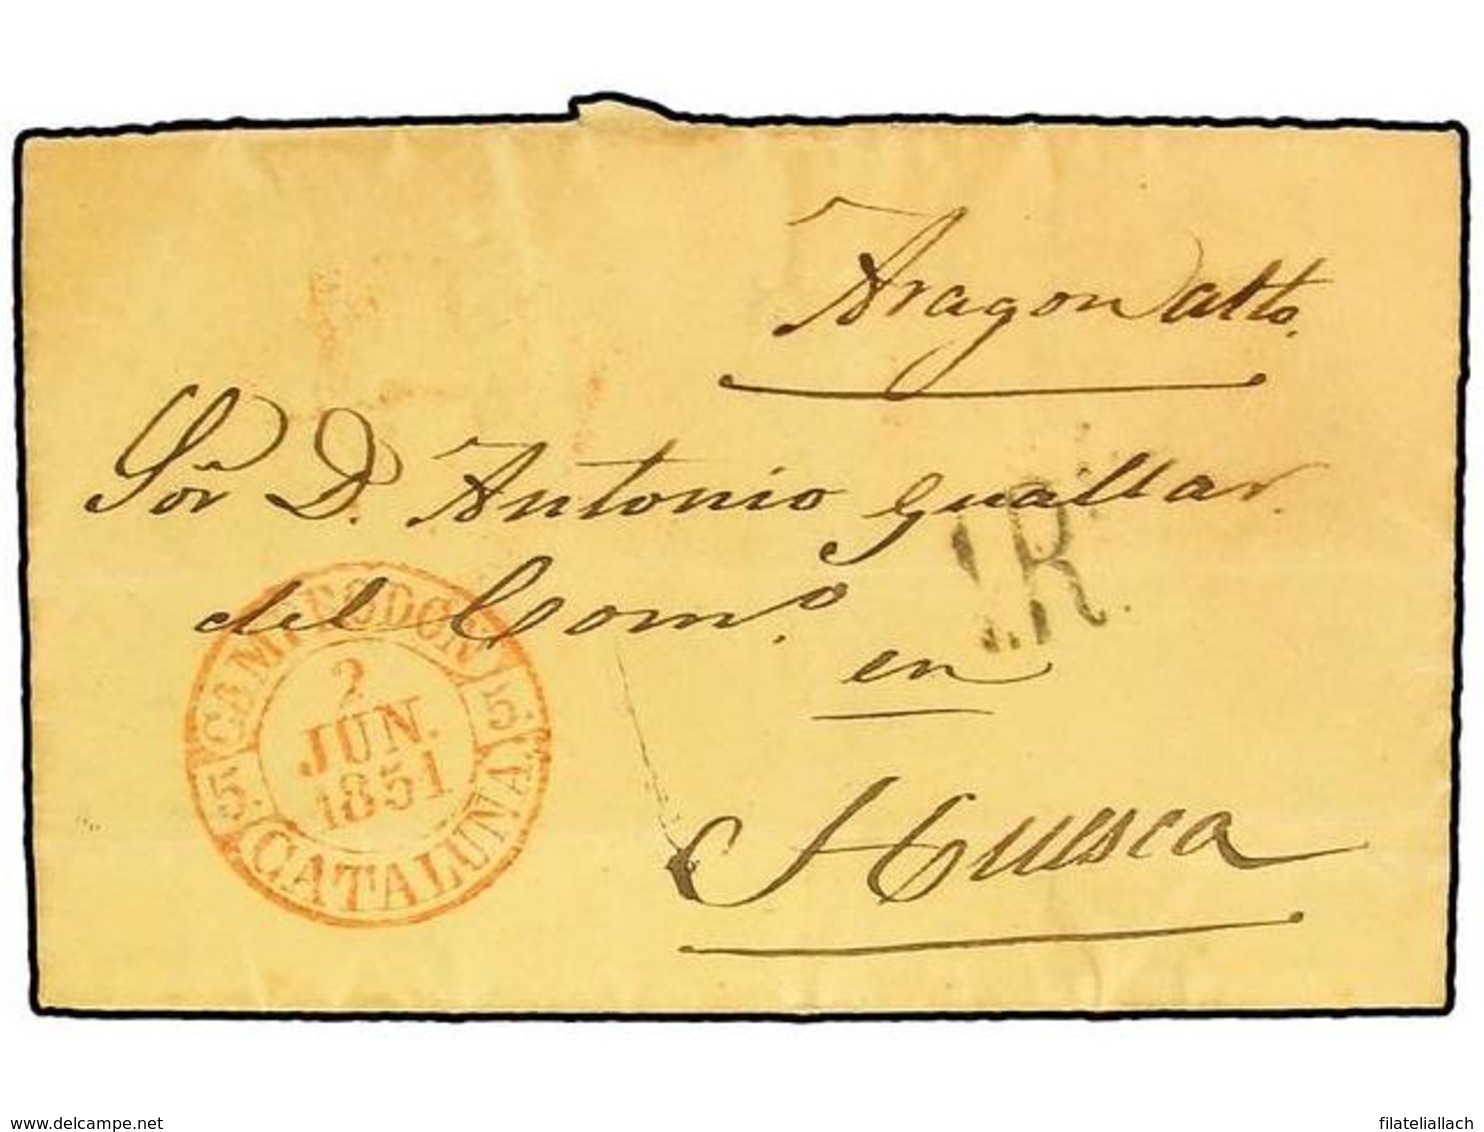 Aragon alto.
Sor. D. Antonio Guallar.
del Com.o
en
Huesca
1R.
CAMPRODON
5
2
JUN.
1851
5
CATALUÑA
www.delcampe.net
filateliallach